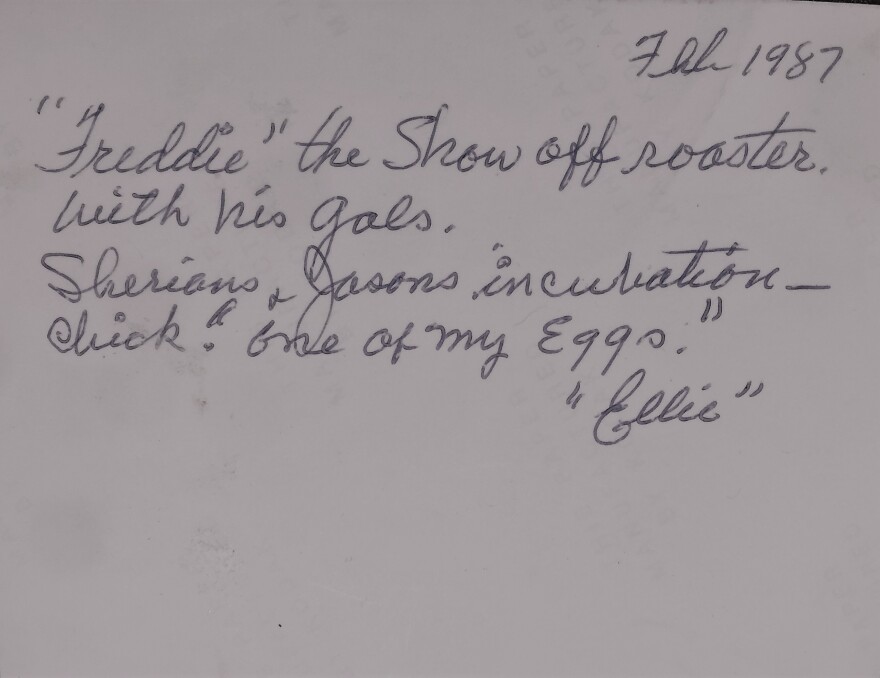 Feb 1987
"Freddie" the Show off rooster.
with his gals.
Sherians & Jasons incubation –
Chick. "One of my Eggs."
"Ellie"